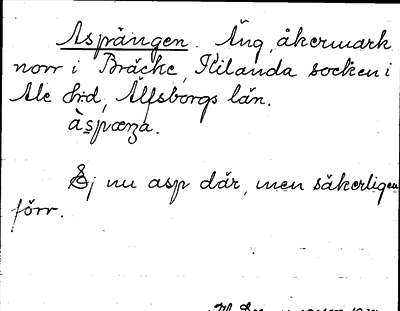 Aspängen. Äng, åkermark
norr i Bräcke, Kilanda socken i
Ale Hrd, Älfsborgs län.
àspæŋa.
Ej nu asp där, men säkerligen
förr.